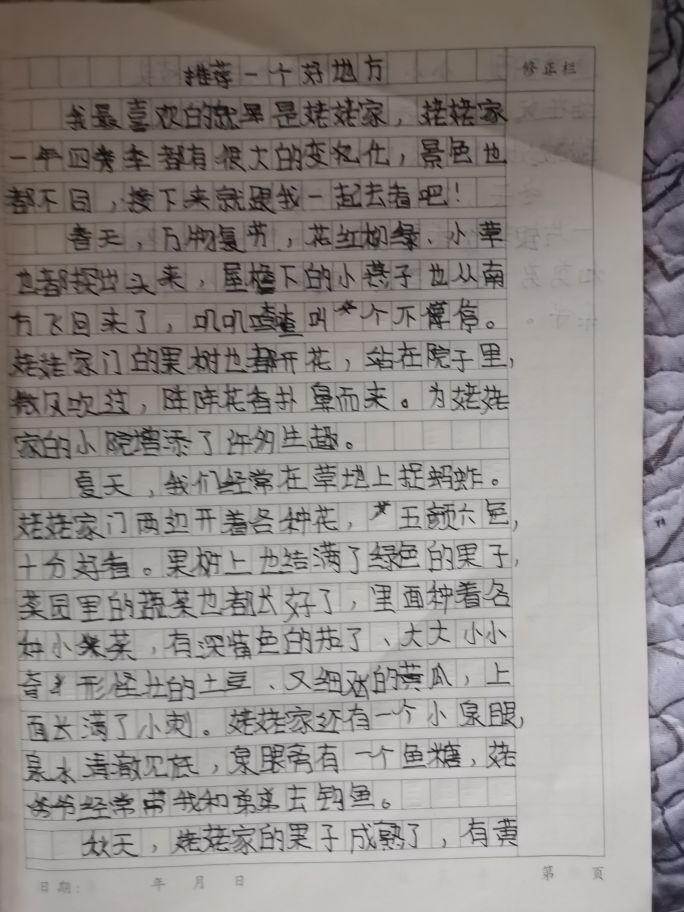 推荐一个好地方
修正栏
我最喜欢的就是姥姥家，姥姥家
一年四季都有很大的变化，景色也
都不同，接下来就跟我一起去看吧！
春天，万物复苏，花红柳绿、小草
也都探出头来，屋檐下的小燕子也从南
方飞回来了，叽叽喳喳叫个不停。
姥姥家门的果树也都开花，站在院子里，
微风吹过，阵阵花香扑鼻而来。为姥姥
家的小院增添了许多生趣。
夏天，我们经常在草地上捉蚂蚱。
姥姥家门两边开着各种花，五颜六色，
十分好看。果树上也结满了绿色的果子，
菜园里的蔬菜也都长好了，里面种着各
种小菜，有深紫色的茄子、大大小小
奇形怪壮的土豆、又细又长的黄瓜，上
面长满了小刺。姥姥家还有一个小泉眼，
泉水清澈见底，泉眼旁有一个鱼塘，姥
爷经常带我和弟弟去钓鱼。
秋天，姥姥家的果子成熟了，有黄
日期： 年 月 日
第 页